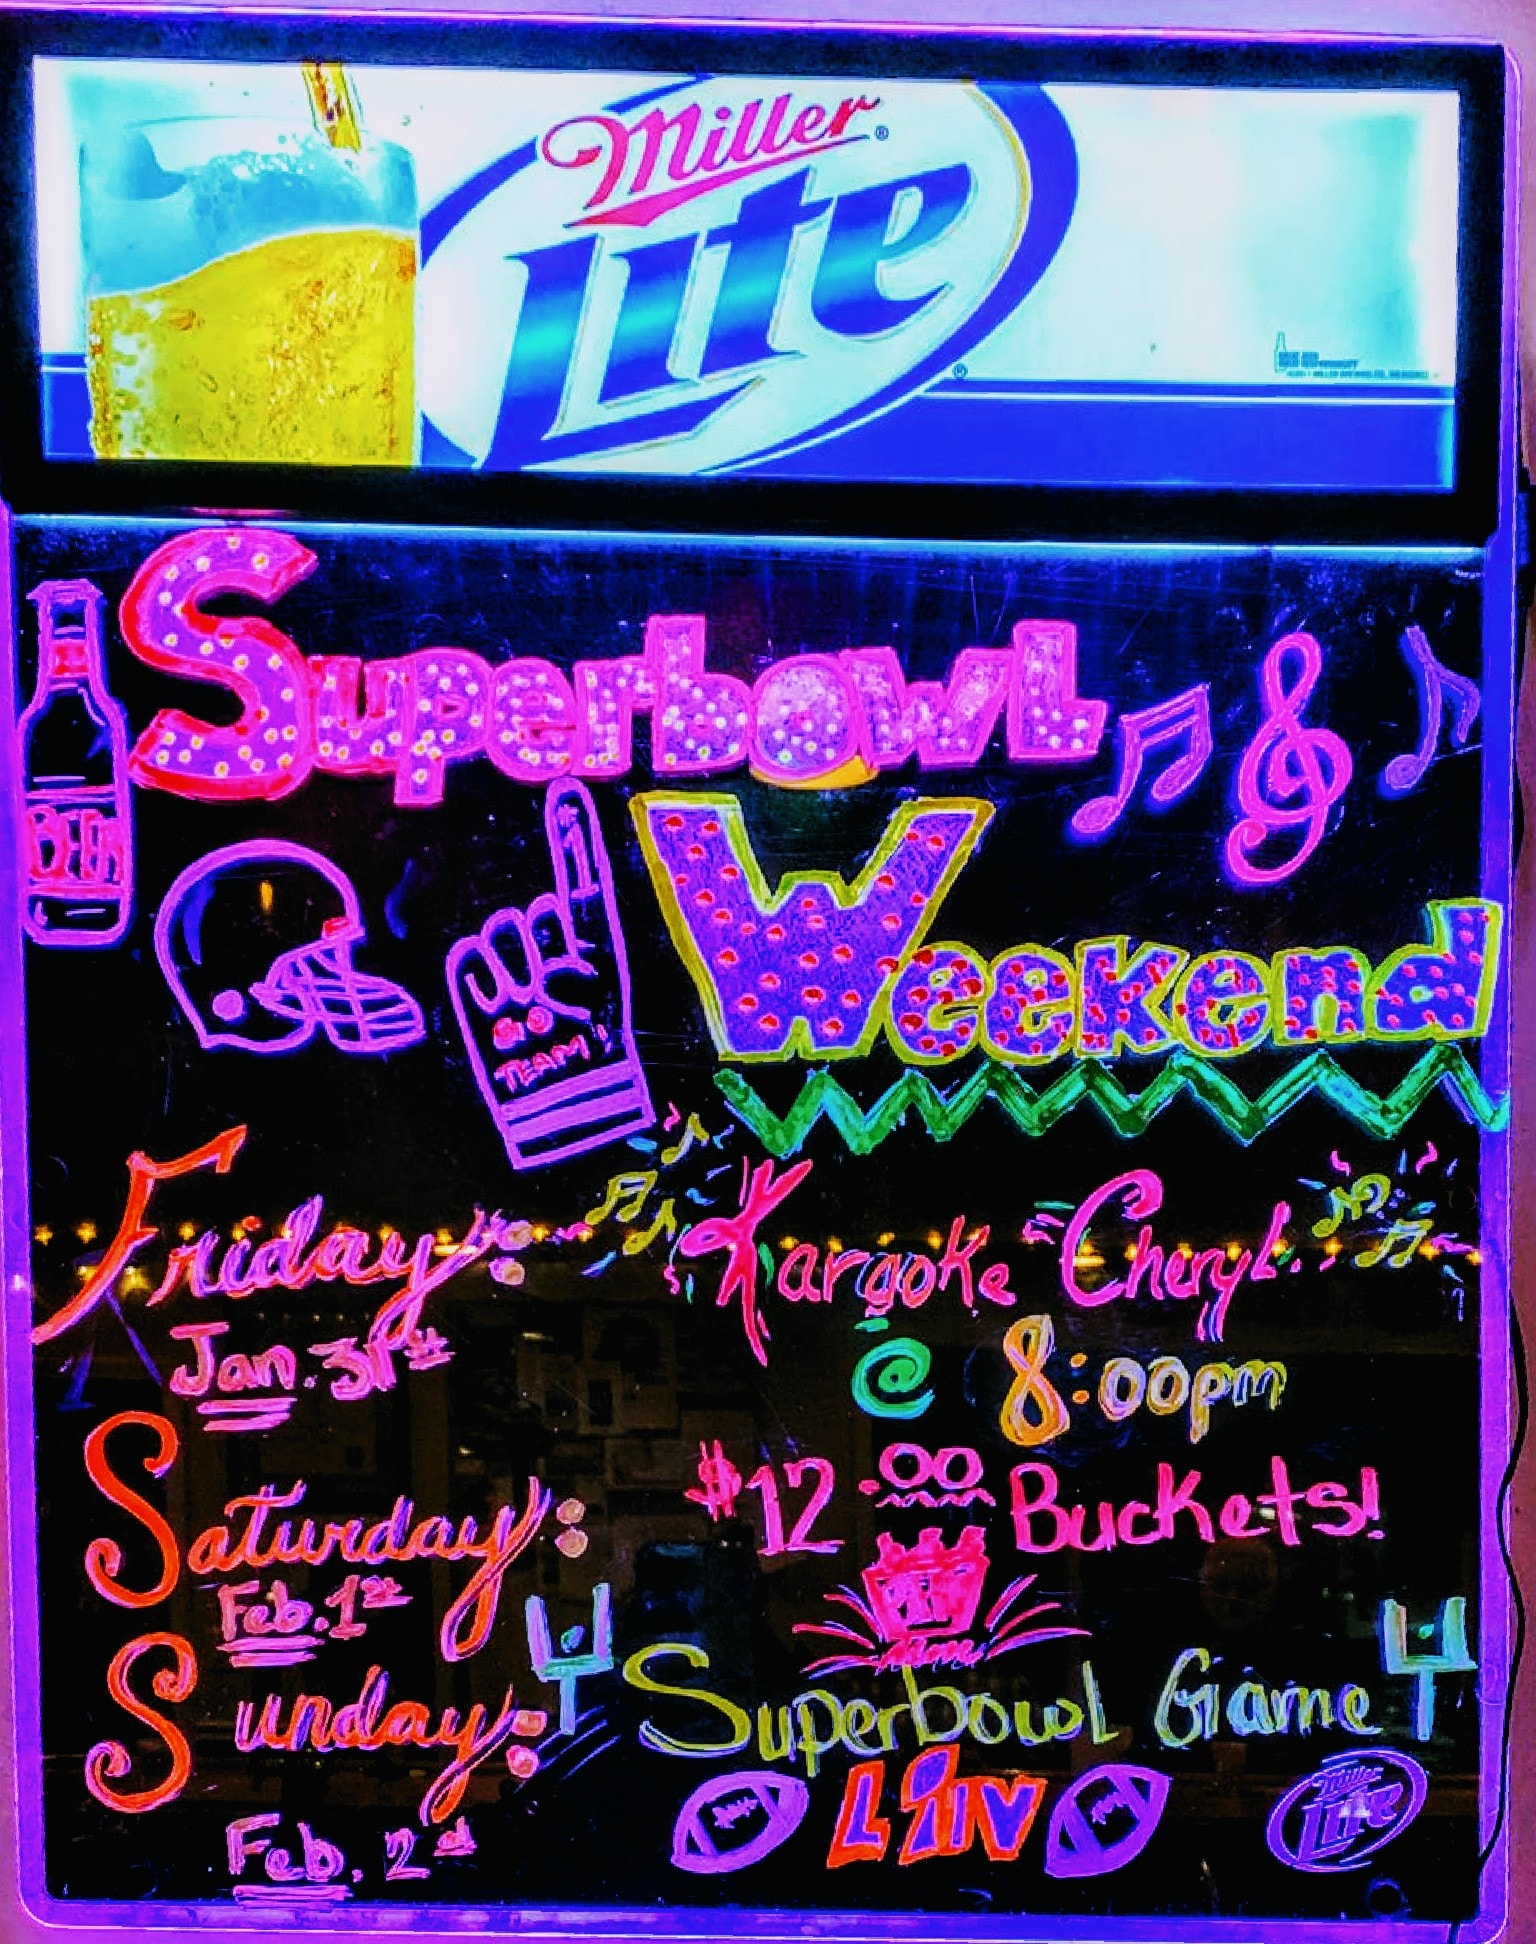 Miller®
Lite®
Superbowl
BEER
#1
Weekend
GO
TEAM!
Friday: Karaoke "Cheryl"
Jan. 31st @ 8:00pm
Saturday: $12.00 Buckets!
Feb. 1st
Sunday: Superbowl Game
Feb. 2nd LIV
Miller
Lite